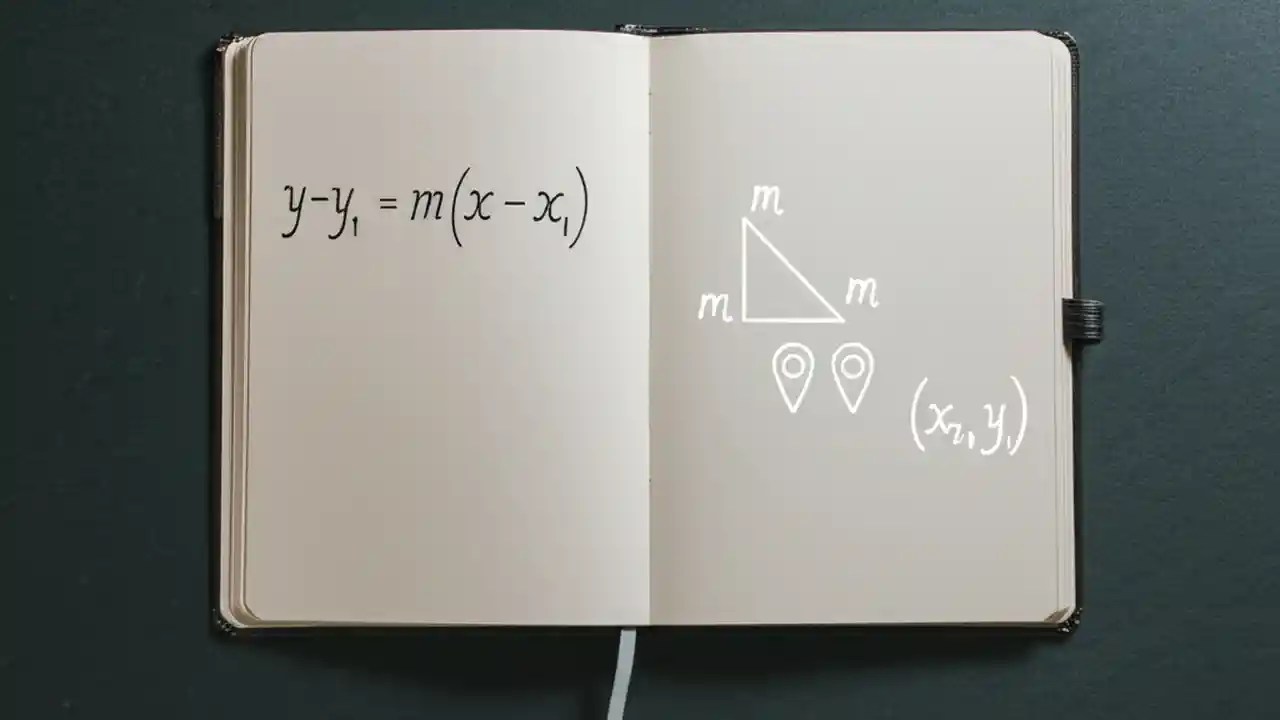 y-y₁ = m(x - x₁)
m
m
m
(x₂₁, y₁)